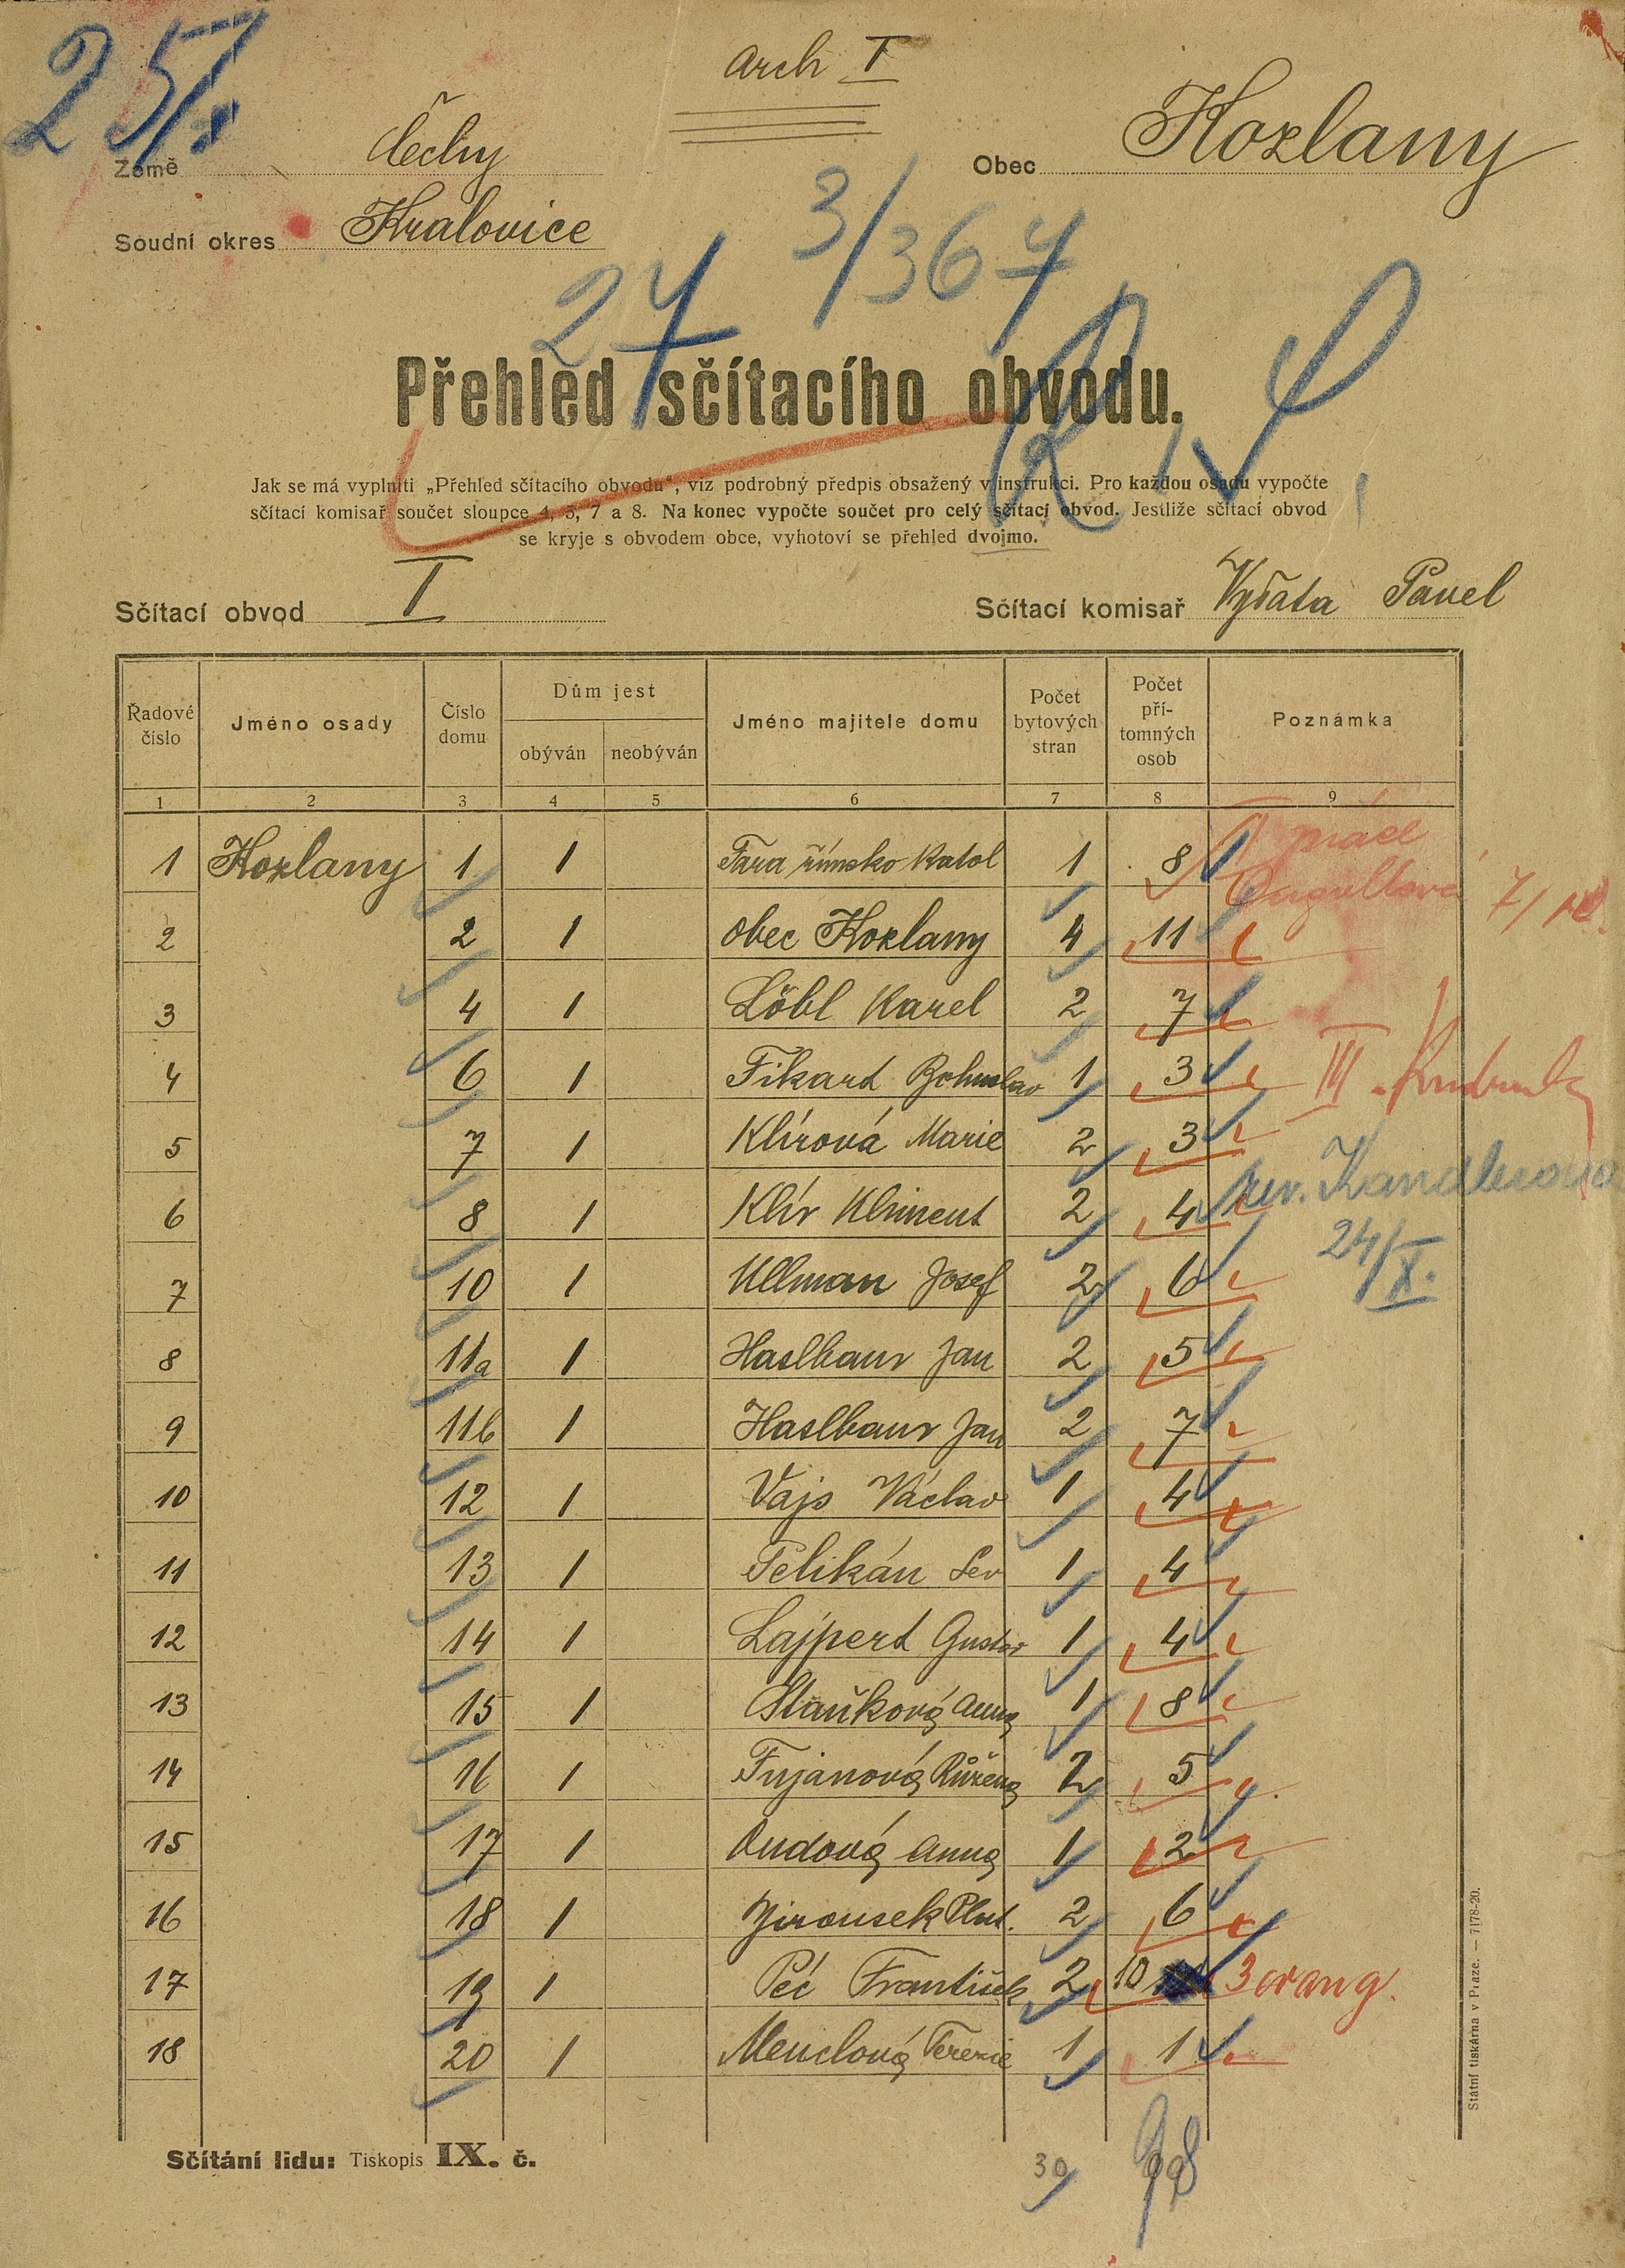 25/X
arch I
Země Čechy
Obec Kozlany
Soudní okres Kralovice
3/367
27
Přehled sčítacího obvodu.
Jak se má vyplniti „Přehled sčítacího obvodu“, viz podrobný předpis obsažený v instrukci. Pro každou osadu vypočte
sčítací komisař součet sloupce 4, 5, 7 a 8. Na konec vypočte součet pro celý sčítací obvod. Jestliže sčítací obvod
se kryje s obvodem obce, vyhotoví se přehled dvojmo.
Sčítací obvod I
Sčítací komisař Pavel
Řadové číslo Jméno osady Číslo domu Dům jest obýván neobýván Jméno majitele domu Počet bytových stran Počet přítomných osob Poznámka
1 2 3 4 5 6 7 8 9
1 Kozlany 1 1 Fara římsko katol 1 8
2 2 1 obec Kozlany 4 11
3 4 1 Löbl Karel 2 7
4 6 1 Fikard Bohuslav 1 3 III.
5 7 1 Klírová Marie 2 3
6 8 1 Klír Kliment 2 4 rev. Kandlerova
7 10 1 Ullman Josef 2 6 24/X.
8 11a 1 Haslbaur Jan 2 5
9 11b 1 Haslbaur Jan 2 7
10 12 1 Vajs Václav 1 4
11 13 1 Pelikán Lev 1 4
12 14 1 Lajpert Gustav 1 4
13 15 1 Staňková Anna 1 8
14 16 1 Fujanová Růžena 2 5
15 17 1 Dudová Anna 1 2
16 18 1 Jirousek 2 6
17 19 1 Péč František 2 10 3 orang.
18 20 1 Menclová Terezie 1 1
30 98
Sčítání lidu: Tiskopis IX. č.
Státní tiskárna v Praze. — 7178-20.